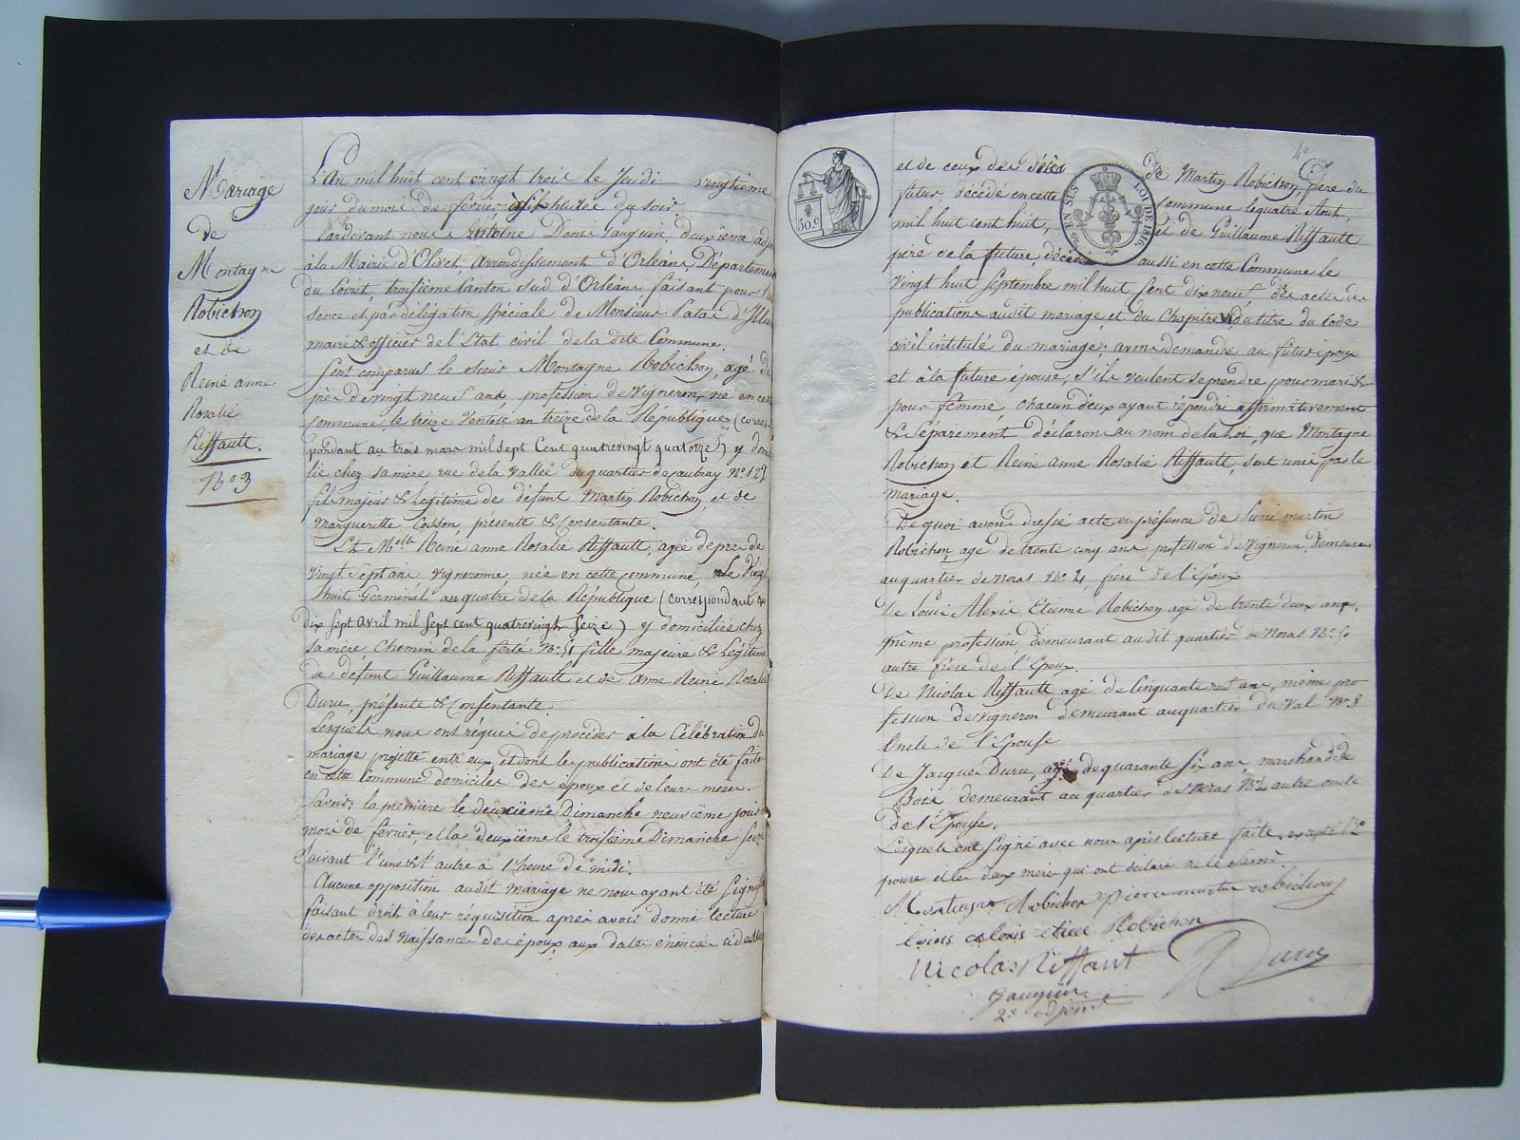 Mariage
de
Montagne
Robichon
et de
Reine anne
Rosalie
Riffault.
N° 3
L'An mil huit cent vingt trois le Jeudi vingtieme
jour du mois de fevrier à six heures du soir,
Pardevant nous Antoine Denis Jauquin, deuxieme adj
à la Mairie d'Olivet, Arrondissement d'Orleans, Departement
du Loiret, troisieme Canton Sud d'Orleans faisant pour l'a
sence et par délégation spéciale de Monsieur
maire & officier de l'Etat civil de la dite Commune.
Sont comparus le sieur Montagne Robichon, agé de
près de vingt neuf ans, profession de vigneron, né en cette
commune, le treize Ventose an de la République (corres
pondant au trois mars mil sept Cent quatrevingt quatorze) y domi
lié chez sa mere rue de la vallée au quartier de N° 127
fils majeur & legitime de défunt Martin Robichon, et de
Marguerite Cosson, présente & Consentante.
Et Melle Reine anne Rosalie Riffault, agée de pres de
vingt sept ans vigneronne, née en cette commune, Le Vingt
huit Germinal an quatre de la République (correspondant au
dix sept avril mil sept cent quatrevingt seize) y domiciliée chez
sa mere, Chemin de la ferté N° 51 fille majeure & legitime
de défunt Guillaume Riffault et de anne Reine Rosalie
Duru, présente & Consentante.
Lesquels nous ont requis de proceder à la Célébration du
mariage projetté entr'eux et dont les publications ont été faites
en cette Commune domiciles des époux et de leurs meres.
Savoir, la premiere le deuxieme Dimanche neuvieme jour du
mois de fevrier, et la deuxieme le troisieme Dimanche seize
suivant l'une & l'autre à l'heure de midi.
Aucune opposition audit mariage ne nous ayant été signifiée
faisant droit à leur réquisition après avoir donné lecture
des actes des Naissances des époux aux dates énoncées ci dessus
et de ceux des décès de Martin Robichon, père du
futur décédé en cette commune le quatre Aout,
mil huit cent huit, et de Guillaume Riffault
père de la future, décédé aussi en cette Commune le
vingt huit septembre mil huit Cent dix neuf des actes de
publications audit mariage et du Chapitre VI du titre du Code
civil intitulé du mariage, avons demandé au futur époux
et à la future épouse, s'ils veulent se prendre pour mari &
pour femme, chacun d'eux ayant répondu affirmativement
& séparement déclarons au nom de la Loi, que Montagne
Robichon et Reine anne Rosalie Riffault, sont unis par le
mariage.
De quoi avons dressé acte en présence de Pierre martin
Robichon, agé de trente cinq ans profession de vigneron demeurant
au quartier de Noras N° 4, frere de l'Epoux
De Louis Alexis Etienne Robichon agé de trente deux ans,
même profession demeurant au dit quartier de Noras N° 50
autre frère de l'Epoux.
De Nicolas Riffault agé de Cinquante ans, même pro
fession de vigneron demeurant au quartier du Val N° 8
Oncle de l'Epouse
De Jacques Duru, agé de quarante Six ans, marchand de
Bois demeurant au quartier de Noras N° autre oncle
de l'Epouse.
Lesquels ont signé avec nous après lecture faite, excepté l'é
pouse et les deux meres qui ont déclaré ne le savoir.
Montagne Robichon Pierre martin robichon
louis alexis etiene Robichon
Nicolas Riffaut Duru
Jauquin
2e adjoint
50 C
LOI DE 1816